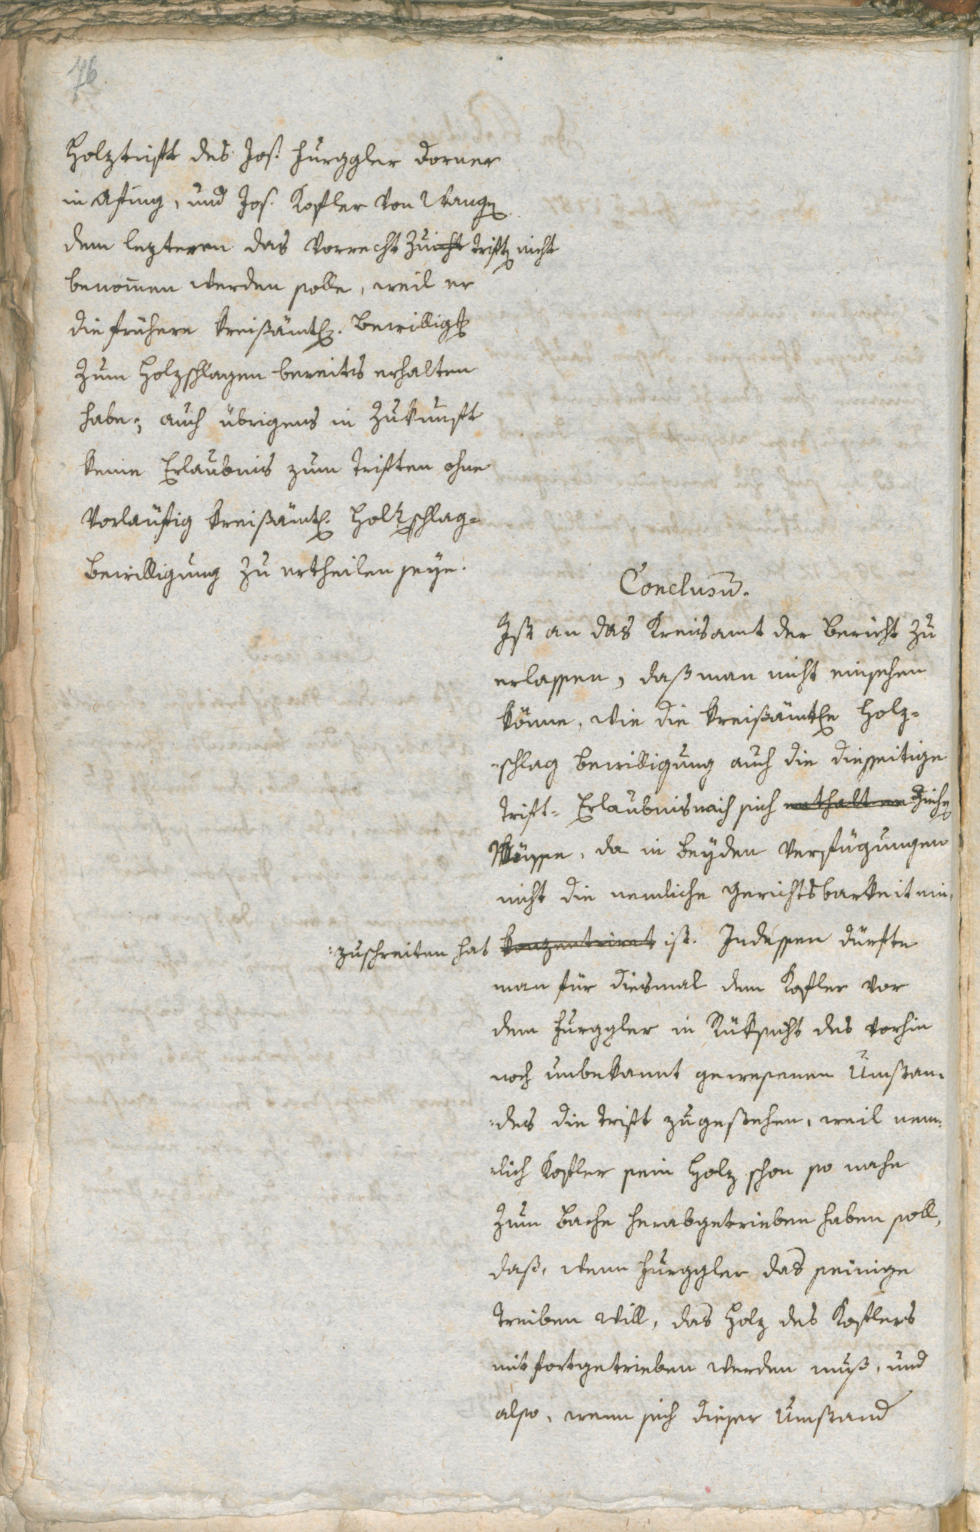 76.
Holztrift des Jos. Hurggler Dorner
in Afing, und Jos. Kofler von Wang
dem lezteren das Vorrecht zu triften nicht
benommen werden solle, weil er
die frühere kreißämtl. Bewillig
zum Holzschlagen bereits erhalten
habe; auch übrigens in Zukunft
keine Erlaubnis zum Triften ohne
vorläufig kreißämtl. Holzschlag-
bewilligung zu ertheilen seye.
Conclusum.
Ist an das Kreisamt der Bericht zu
erlassen, daß man nicht einsehen
könne, wie die kreißämtle Holz-
schlag bewilligung auch die diesseitige
Trift-Erlaubnis nach sich enthalten ziehen
müsse, da in beyden Verfügungen
nicht die nemliche Gerichtsbarkeit ein-
:zuschreiten hat konzentrirt ist. Indessen dürfte
man für diesmal dem Kofler vor
dem Hurggler in Rüksicht des vorhin
noch unbekannt gewesenen Umstan-
:des die Trift zugestehen, weil nem-
:lich Kofler sein Holz schon so nahe
zum Bache herabgetrieben haben soll,
daß, wenn Hurggler das seinige
treiben will, das Holz des Koflers
mit fortgetrieben werden muß, und
also, wenn sich dieser Umstand